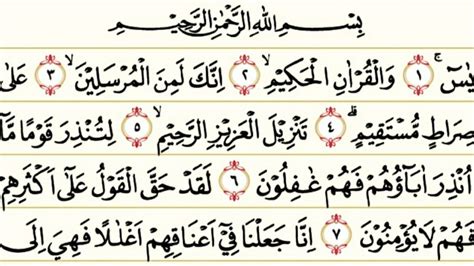 بِسْمِ اللهِ الرَّحْمٰنِ الرَّحِيْمِ
يٰسٓ ۚ ١ وَالْقُرْاٰنِ الْحَكِيْمِۙ ٢ اِنَّكَ لَمِنَ الْمُرْسَلِيْنَۙ ٣ عَلٰى
صِرَاطٍ مُّسْتَقِيْمٍۗ ٤ تَنْزِيْلَ الْعَزِيْزِ الرَّحِيْمِۙ ٥ لِتُنْذِرَ قَوْمًا مَّآ
اُنْذِرَ اٰبَاۤؤُهُمْ فَهُمْ غٰفِلُوْنَ ٦ لَقَدْ حَقَّ الْقَوْلُ عَلٰٓى اَكْثَرِهِمْ
فَهُمْ لَا يُؤْمِنُوْنَ ٧ اِنَّا جَعَلْنَا فِيْٓ اَعْنَاقِهِمْ اَغْلٰلًا فَهِيَ اِلَى